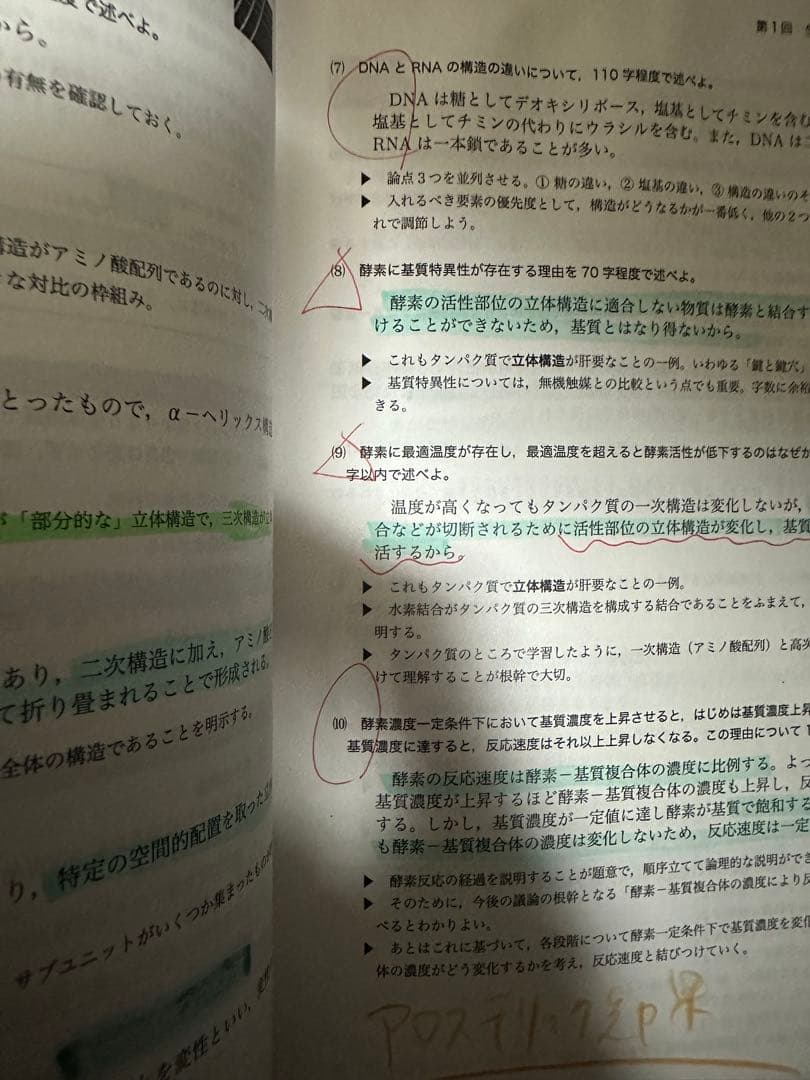 で述べよ。
から。
有無を確認しておく。
造がアミノ酸配列であるのに対し,
な対比の枠組み。
とったもので, α−ヘリックス構造
「部分的な」立体構造で, 三次構造が
あり, 二次構造に加え, アミノ酸
て折り畳まれることで形成される。
全体の構造であることを明示する。
り, 特定の空間的配置を取った
サブユニットがいくつか集まったものが
を変性といい,
第1回
(7) DNAとRNAの構造の違いについて, 110字程度で述べよ。
DNAは糖としてデオキシリボース, 塩基としてチミンを含む
塩基としてチミンの代わりにウラシルを含む。また, DNAは
RNAは一本鎖であることが多い。
▶ 論点3つを並列させる。① 糖の違い, ② 塩基の違い, ③ 構造の違いのそ
▶ 入れるべき要素の優先度として, 構造がどうなるかが一番低く, 他の2つ
れで調節しよう。
(8) 酵素に基質特異性が存在する理由を70字程度で述べよ。
酵素の活性部位の立体構造に適合しない物質は酵素と結合す
けることができないため, 基質とはなり得ないから。
▶ これもタンパク質で立体構造が肝要なことの一例。いわゆる「鍵と鍵穴」
▶ 基質特異性については, 無機触媒との比較という点でも重要。字数に余裕
きる。
(9) 酵素に最適温度が存在し, 最適温度を超えると酵素活性が低下するのはなぜか
字以内で述べよ。
温度が高くなってもタンパク質の一次構造は変化しないが,
合などが切断されるために活性部位の立体構造が変化し, 基質
活するから。
▶ これもタンパク質で立体構造が肝要なことの一例。
▶ 水素結合がタンパク質の三次構造を構成する結合であることをふまえて,
明する。
▶ タンパク質のところで学習したように, 一次構造(アミノ酸配列)と高次
けて理解することが根幹で大切。
(10) 酵素濃度一定条件下において基質濃度を上昇させると, はじめは基質濃度上昇
基質濃度に達すると, 反応速度はそれ以上上昇しなくなる。この理由について1
酵素の反応速度は酵素−基質複合体の濃度に比例する。よっ
基質濃度が上昇するほど酵素−基質複合体の濃度も上昇し, 反
する。しかし, 基質濃度が一定値に達し酵素が基質で飽和する
も酵素−基質複合体の濃度は変化しないため, 反応速度は一定
▶ 酵素反応の経過を説明することが題意で, 順序立てて論理的な説明ができ
▶ そのために, 今後の議論の根幹となる「酵素−基質複合体の濃度により反
べるとわかりよい。
▶ あとはこれに基づいて, 各段階について酵素一定条件下で基質濃度を変化
体の濃度がどう変化するかを考え, 反応速度と結びつけていく。
アロステリック効果